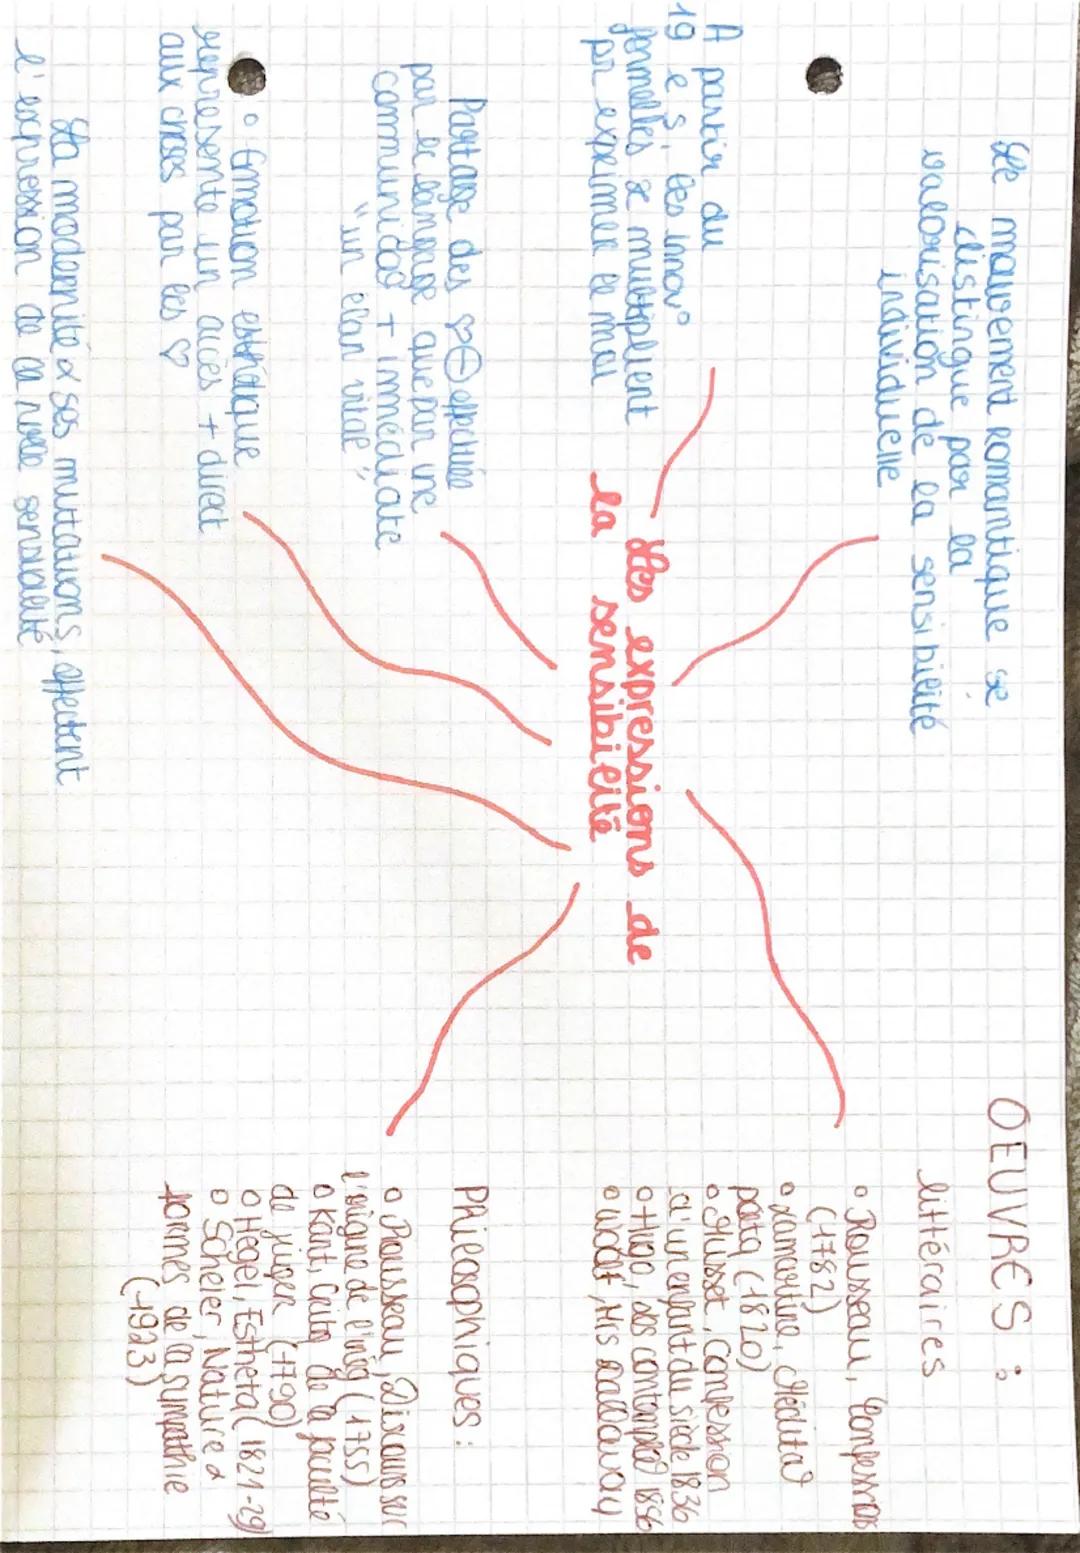 Le mouvement romantique se
distingue par la
valorisation de la sensibilité
individuelle
A partir du
19 e s, les innov°
formelles se multiplient
pr exprimer le moi
Partage des ♡ ⊖ effective
par le langage que par une
communica° + immédiate
"un élan vital"
° Emotion esthétique
représente un accès + direct
aux choses par les ♡
La modernité & ses mutations, affectent
l'expression de la nvelle sensibilité
Les expressions de
la sensibilité
OEUVRES :
littéraires
° Rousseau, Confessions
(1782)
° Lamartine, Médita°
poétq (1820)
° Musset, Confession
d'un enfant du siècle 1836
° Hugo, Les contempla° 1856
° Woolf, Mrs Dalloway
Philosophiques :
° Rousseau, Discours sur
l'origine de l'inég (1755)
° Kant, Critq de la faculté
de juger (1790)
° Hegel, Esthétq (1821-29)
° Scheler, Nature &
formes de la sympathie
(1923)